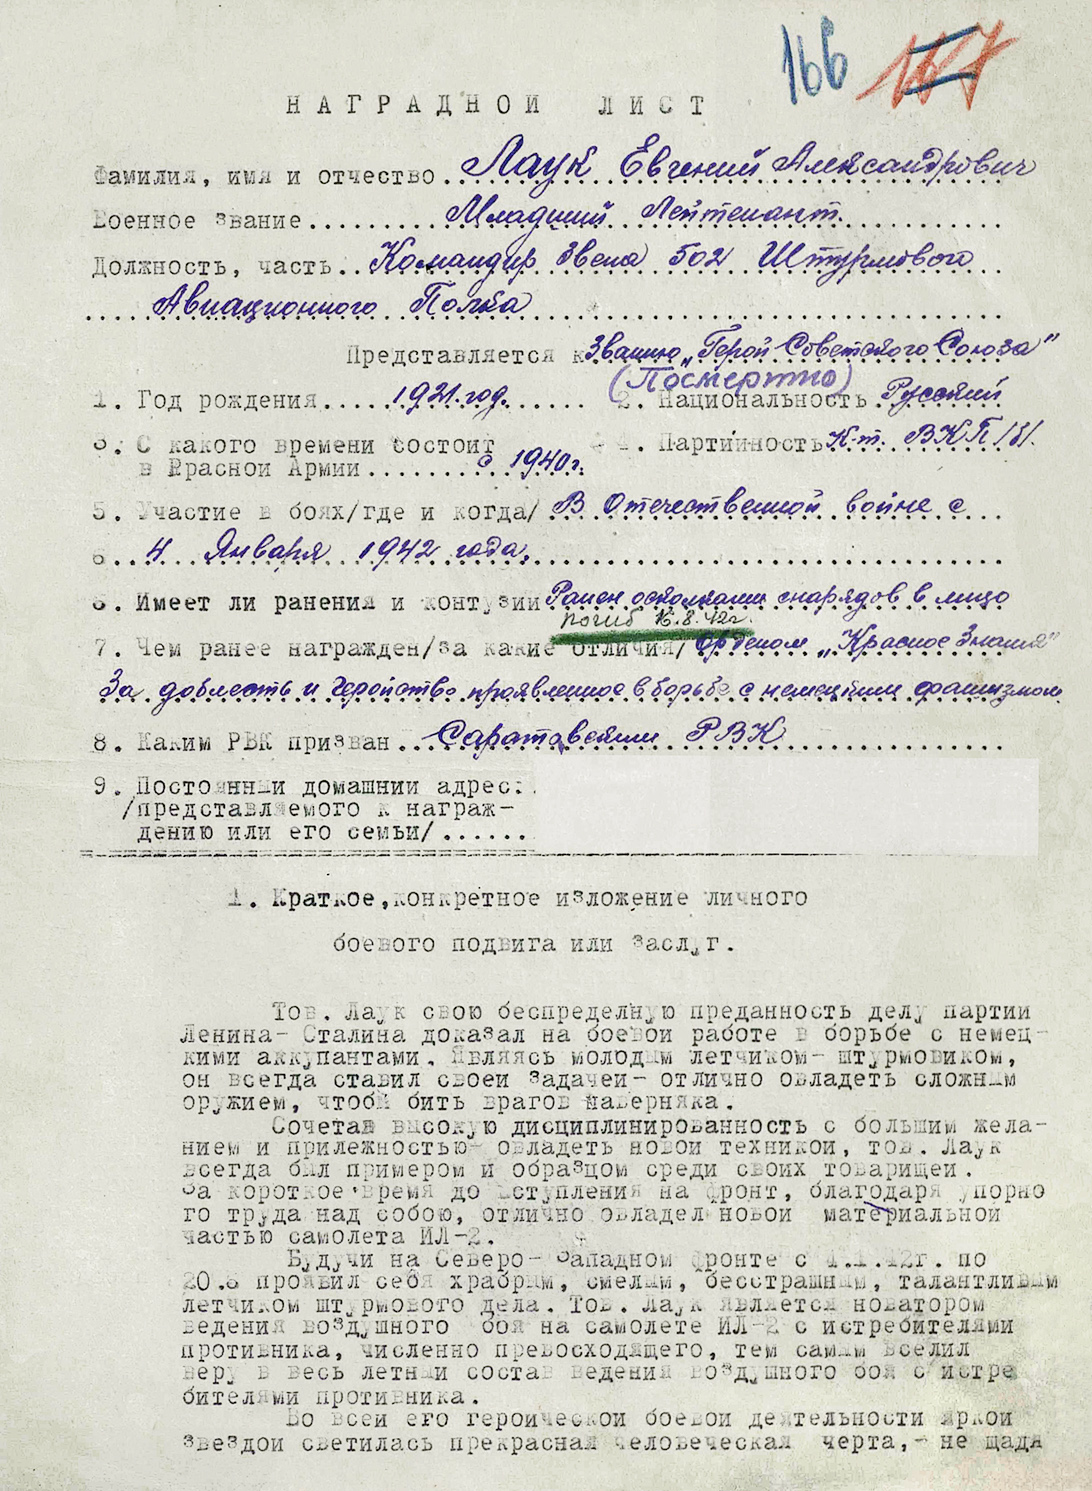 166 167
НАГРАДНОЙ ЛИСТ
Фамилия, имя и отчество..Лаук Евгений Александрович
Военное звание.......Младший Лейтенант.
Должность, часть..Командир Звена 502 Штурмового
Авиационного Полка
Представляется к Званию „Герой Советского Союза"
(Посмертно)
1. Год рождения.....1921 год...... 2. Национальность.Русский
3. С какого времени состоит 4. Партийность К-т. ВКП/б/.
в Красной Армии........с 1940г.
5. Участие в боях/где и когда/ В Отечественной войне с
4 Января 1942 года.
6. Имеет ли ранения и контузии Ранен осколками снарядов в лицо
погиб 16.8.42г.
7. Чем ранее награжден/за какие отличия/ Орденом „Красное Знамя"
За доблесть и геройство проявленное в борьбе с немецким фашизмом
8. Каким РВК призван...Саратовским РВК
9. Постоянныи домашнии адрес:.
/представляемого к награж-
дению или его семьи/......
1. Краткое,конкретное изложение личного
боевого подвига или заслуг.
Тов. Лаук свою беспредельную преданность делу партии
Ленина- Сталина доказал на боевои работе в борьбе с немец-
кими аккупантами. Являясь молодым летчиком- штурмовиком,
он всегда ставил своеи задачеи- отлично овладеть сложным
оружием, чтобы бить врагов наверняка.
Сочетая высокую дисциплинированность с большим жела-
нием и прилежностью- овладеть новои техникои, тов. Лаук
всегда был примером и образцом среди своих товарищеи.
За короткое время до вступления на фронт, благодаря упорно
го труда над собою, отлично овладел новои материальнои
частью самолета ИЛ-2.
Будучи на Северо- Западном фронте с 4.1.42г. по
20.8 проявил себя храбрым, смелым, бесстрашным, талантливым
летчиком штурмового дела. Тов. Лаук является новатором
ведения воздушного боя на самолете ИЛ-2 с истребителями
противника, численно превосходящего, тем самым вселил
веру в весь летныи состав ведения воздушного боя с истре
бителями противника.
Во всеи его героическои боевои деятельности яркои
звездои светилась прекрасная человеческая черта,- не щадя